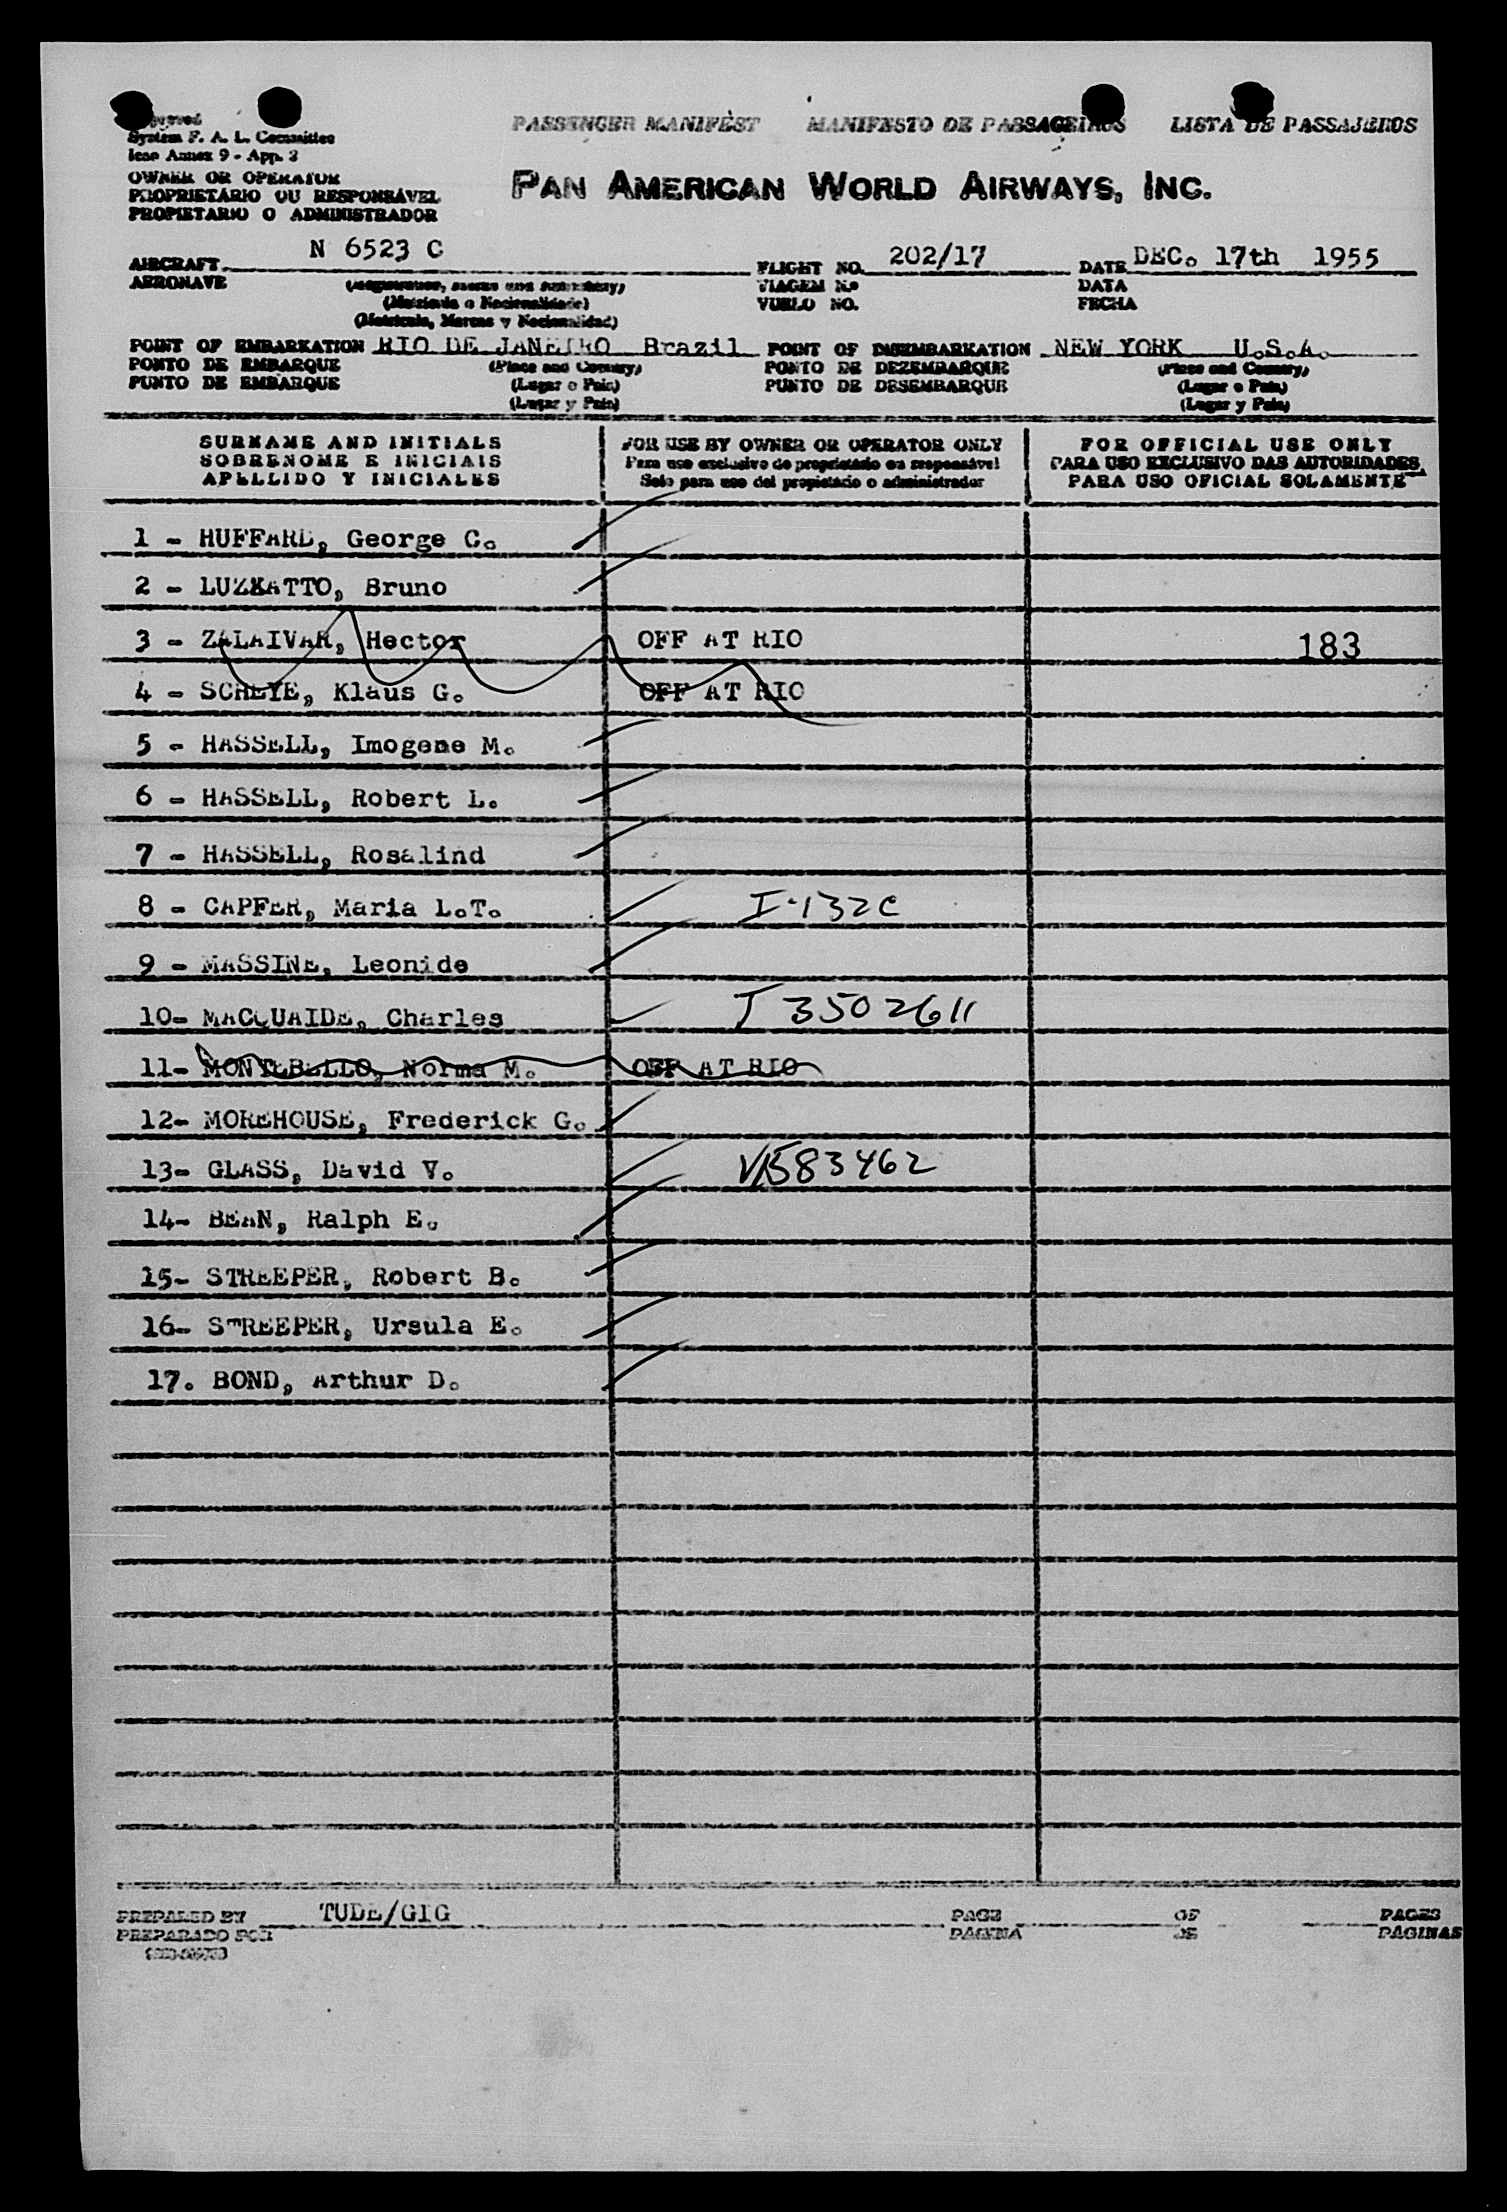 System F. A. L. Committee
Icao Annex 9 - App. 3
PASSENGER MANIFEST MANIFESTO DE PASSAGEIROS LISTA DE PASSAJEROS
OWNER OR OPERATOR
PROPRIETÁRIO OU RESPONSÁVEL
PROPIETARIO O ADMINISTRADOR
PAN AMERICAN WORLD AIRWAYS, INC.
AIRCRAFT N 6523 C FLIGHT NO. 202/17 DATE DEC. 17th 1955
AERONAVE (Registration, marks and nationality) VIAGEM N.º DATA
(Matricula o Nacionalidade) VUELO NO. FECHA
(Matricula, Marcas y Nacionalidad)
POINT OF EMBARKATION RIO DE JANEIRO Brazil POINT OF DISEMBARKATION NEW YORK U.S.A.
PONTO DE EMBARQUE (Place and Country) PONTO DE DEZEMBARQUE (Place and Country)
PUNTO DE EMBARQUE (Lugar o Pais) PUNTO DE DESEMBARQUE (Lugar o Pais)
(Lugar y Pais) (Lugar y Pais)
SURNAME AND INITIALS FOR USE BY OWNER OR OPERATOR ONLY FOR OFFICIAL USE ONLY
SOBRENOME E INICIAIS Para uso exclusivo do proprietário ou responsável PARA USO EXCLUSIVO DAS AUTORIDADES
APELLIDO Y INICIALES Solo para uso del propietario o administrador PARA USO OFICIAL SOLAMENTE
1 - HUFFARD, George C.
2 - LUZKATTO, Bruno
3 - ZALAIVAR, Hector OFF AT RIO 183
4 - SCHEYE, Klaus G. OFF AT RIO
5 - HASSELL, Imogene M.
6 - HASSELL, Robert L.
7 - HASSELL, Rosalind
8 - CAPFER, Maria L.T. I-132C
9 - MASSINE, Leonide
10- MACQUAIDE, Charles I 3502611
11- MONTEBELLO, Norma M. OFF AT RIO
12- MOREHOUSE, Frederick G.
13- GLASS, David V. V1583462
14- BEAN, Ralph E.
15- STREEPER, Robert B.
16- STREEPER, Ursula E.
17. BOND, Arthur D.
PREPARED BY TUDE/GIG PAGE OF PAGES
PREPARADO POR PAGINA DE PAGINAS